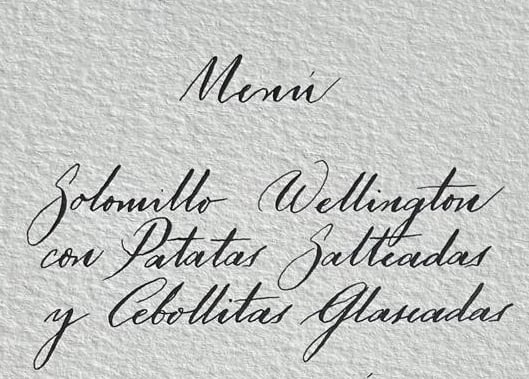 Menú
Solomillo Wellington
con Patatas Salteadas
y Cebollitas Glaseadas